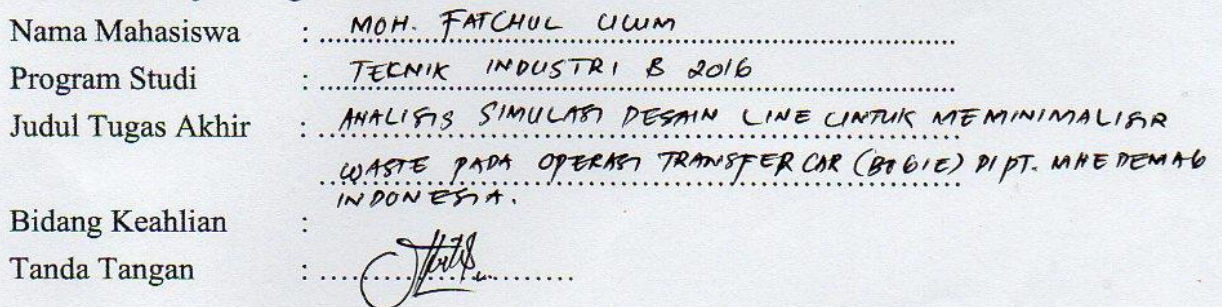 Nama Mahasiswa : MOH. FATCHUL ULUM
Program Studi : TEKNIK INDUSTRI B 2016
Judul Tugas Akhir : ANALISIS SIMULASI DESAIN LINE UNTUK MEMINIMALISIR
WASTE PADA OPERASI TRANSFER CAR (BOGIE) DI PT. MHE DEMAG
INDONESIA.
Bidang Keahlian :
Tanda Tangan :